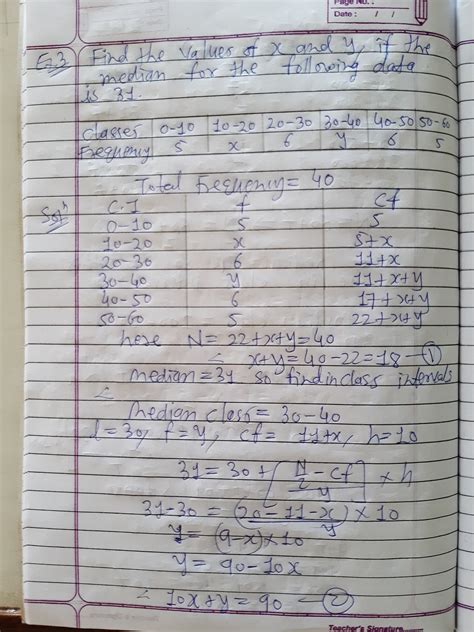 Page No. :
Date : / /
Ex.3 Find the values of x and y, if the
median for the following data
is 31.
Classes 0-10 10-20 20-30 30-40 40-50 50-60
Frequency 5 x 6 y 6 5
Total frequency = 40
Solⁿ C.I f Cf
0-10 5 5
10-20 x 5+x
20-30 6 11+x
30-40 y 11+x+y
40-50 6 17+x+y
50-60 5 22+x+y
here N=22+x+y=40
∴ x+y=40-22=18 - ①
median=31 so find in class intervals
∴
Median class= 30-40
l=30, f=y, cf= 11+x, h=10
31=30+[N/2-cf/y]×h
31-30=(20-11-x)/y×10
y=(9-x)×10
y= 90-10x
∴ 10x+y=90 - ②
Teacher's Signature